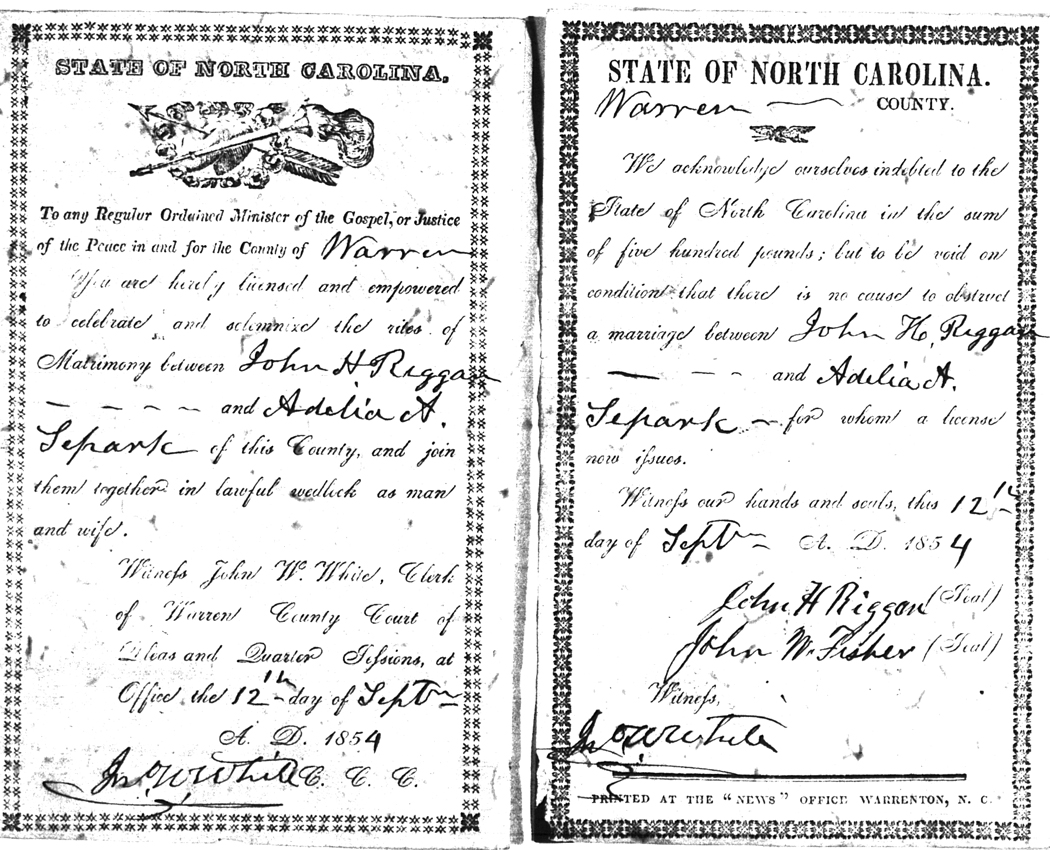 STATE OF NORTH CAROLINA.
To any Regular Ordained Minister of the Gospel, or Justice
of the Peace in and for the County of Warren
You are hereby licensed and empowered
to celebrate and solemnize the rites of
Matrimony between John H Riggan
and Adelia A.
Separk of this County, and join
them together in lawful wedlock as man
and wife.
Witness John W. White, Clerk
of Warren County Court of
Pleas and Quarter Sessions, at
Office the 12th day of Septr
A. D. 1854
Jno W White C. C. C.
STATE OF NORTH CAROLINA.
Warren COUNTY.
We acknowledge ourselves indebted to the
State of North Carolina in the sum
of five hundred pounds; but to be void on
condition that there is no cause to obstruct
a marriage between John H. Riggan
and Adelia A.
Separk for whom a license
now issues.
Witness our hands and seals, this 12th
day of Septr A. D. 1854
John H Riggan (Seal)
John W. Fisher (Seal)
Witness,
Jno W White
PRINTED AT THE "NEWS" OFFICE WARRENTON, N. C.